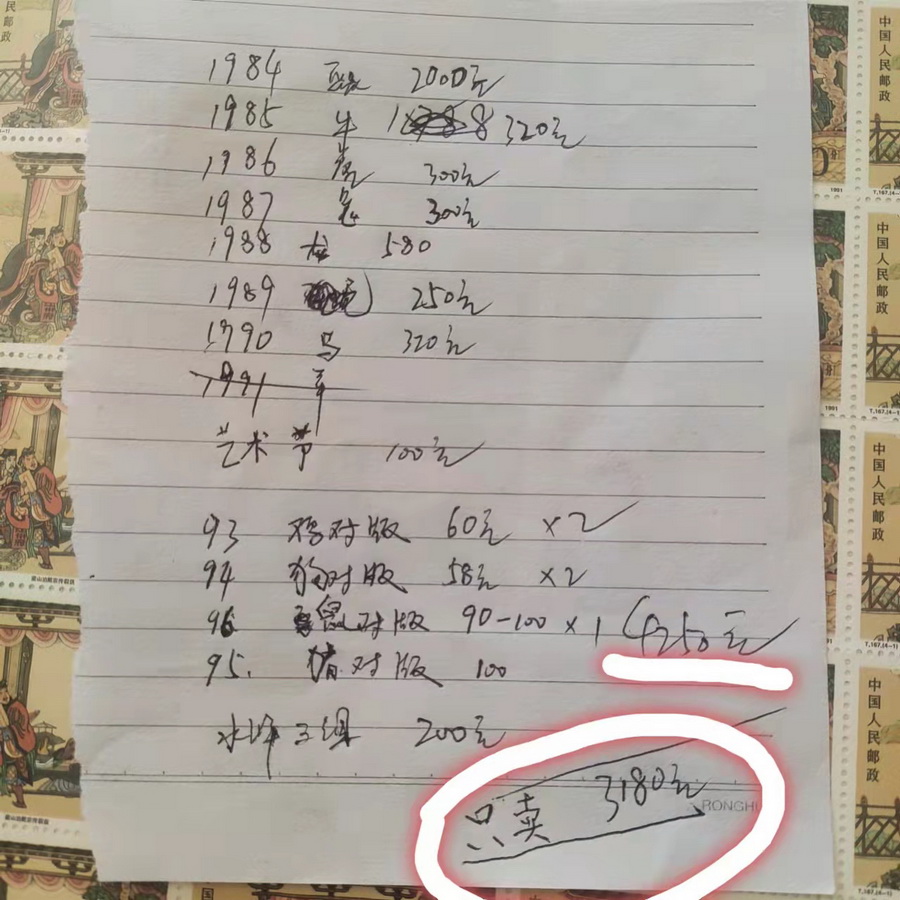 1984 鼠 2000元
1985 牛 1 8 320元
1986 虎 300元
1987 兔 300元
1988 龙 580
1989 250元
1990 马 320元
1991 羊
艺术节 100元
93 鸡对版 60元 ×2
94 狗对版 58元 ×2
96 鼠对版 90-100 ×1 4250元
95. 猪对版 100
水浒三组 200元
只卖 3180元
RONGH
中国人民邮政
中国人民邮政
中国人民邮政
中国人民邮政
1991
T.167.(4-1)
1991
T.167.(4-1)
1991
T.167.(4-1)
T.167.(4-1)